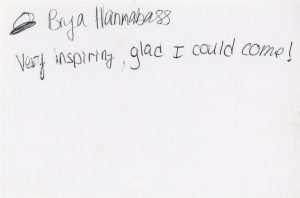 Brya Hannabass
Very inspiring, glad I could come!